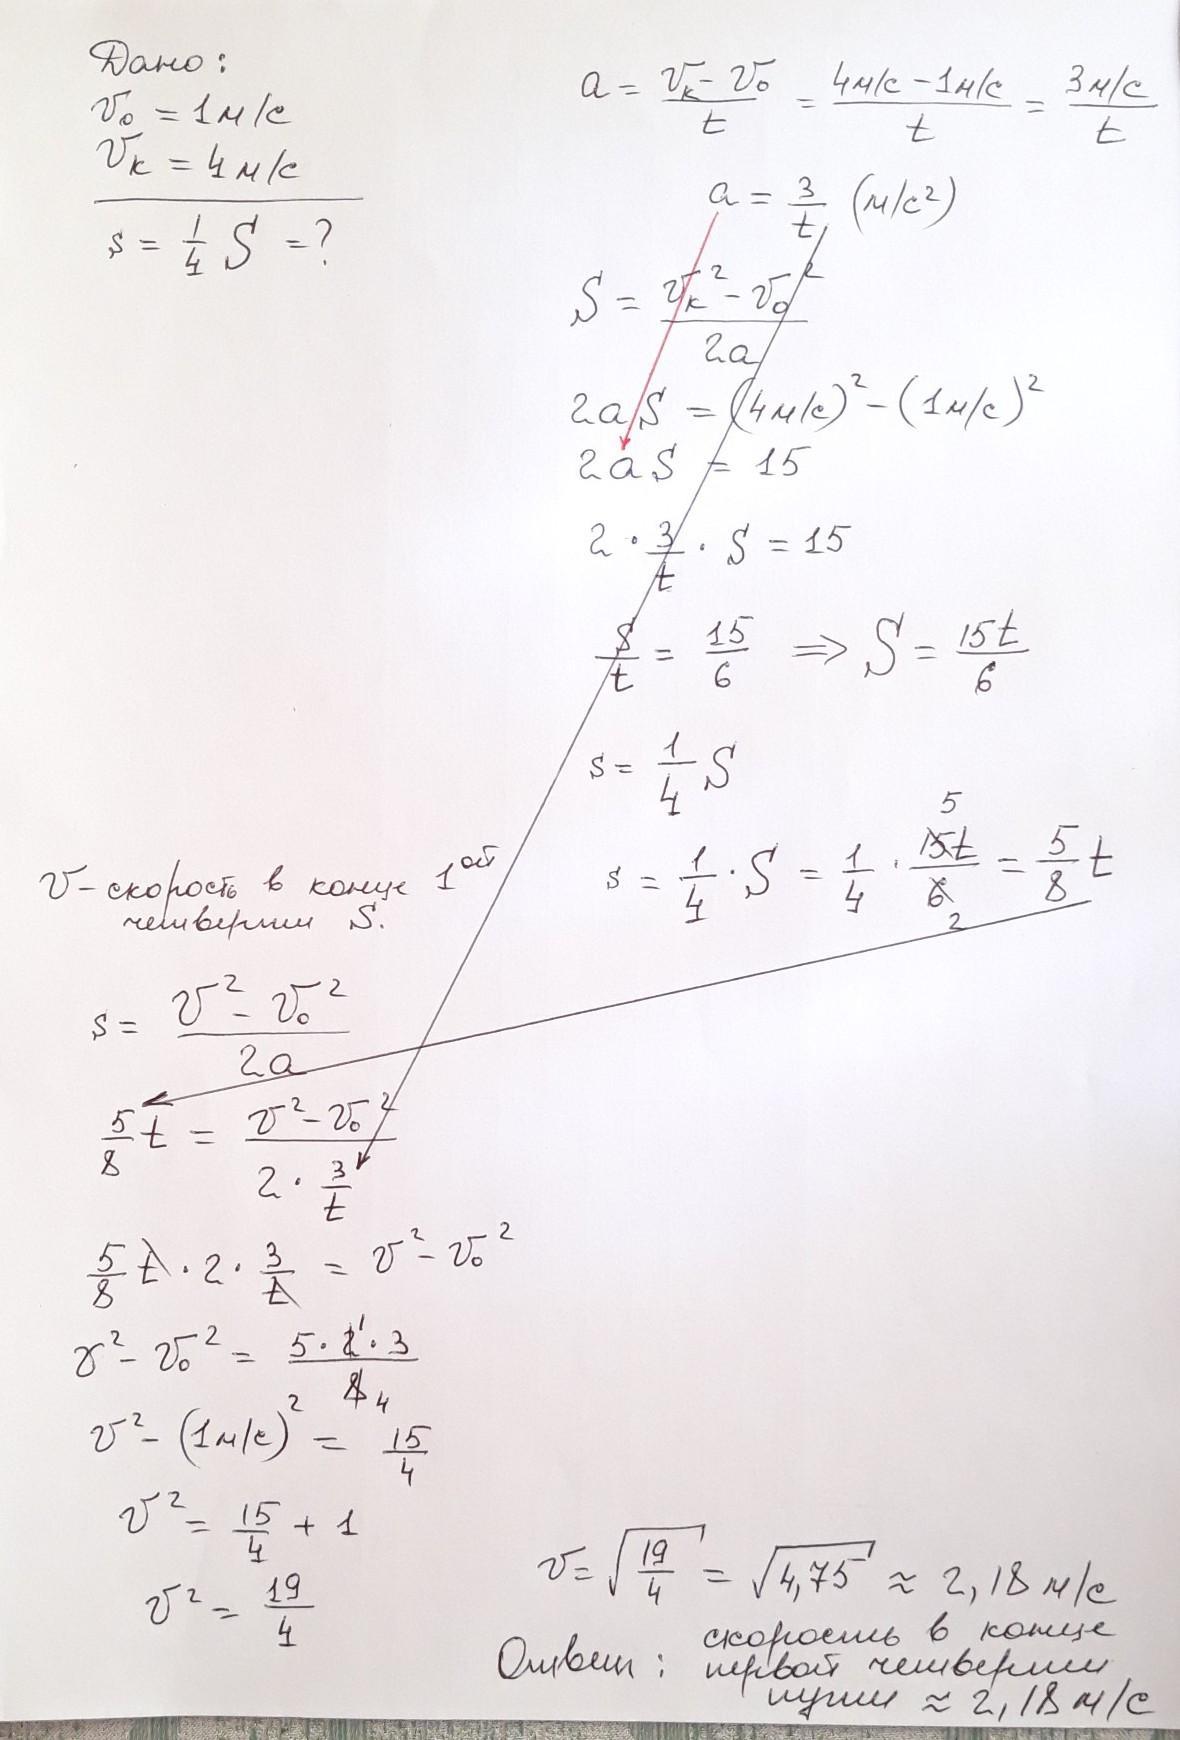 Дано:
v₀ = 1 м/с
vк = 4 м/с
s = 1/4 S = ?
a = (vк - v₀)/t = (4м/с - 1м/с)/t = 3м/с/t
a = 3/t (м/с²)
S = (vк² - v₀²)/2a
2aS = (4м/с)² - (1м/с)²
2aS = 15
2 · 3/t · S = 15
S/t = 15/6 ⇒ S = 15t/6
s = 1/4 S
s = 1/4 · S = 1/4 · 15t/6 = 5/8 t
5
2
v - скорость в конце 1ой
четверти S.
s = (v² - v₀²)/2a
5/8 t = (v² - v₀²)/(2 · 3/t)
5/8 t · 2 · 3/t = v² - v₀²
v² - v₀² = (5 · 2 · 3)/8
1
4
v² - (1м/с)² = 15/4
v² = 15/4 + 1
v² = 19/4
v = √(19/4) = √4,75 ≈ 2,18 м/с
Ответ: скорость в конце
первой четверти
пути ≈ 2,18 м/с